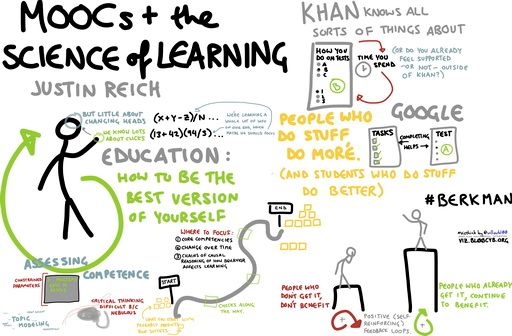 MOOCs + the
SCIENCE of LEARNING
JUSTIN REICH
KHAN KNOWS ALL
SORTS OF THINGS ABOUT
HOW YOU
DO ON TESTS
A
B
C
B
TIME YOU
SPEND
(OR DO YOU ALREADY
FEEL SUPPORTED
-OR NOT- OUTSIDE
OF KHAN?)
BUT LITTLE ABOUT
CHANGING HEADS
WE KNOW LOTS
ABOUT CLICKS
(X+Y-Z)/N...
(13+42)(44/3):...
WE'RE LEARNING A
WHOLE LOT OF
MAYBE WE SHOULD FOCUS
PEOPLE WHO
DO STUFF
DO MORE.
(AND STUDENTS WHO DO STUFF
DO BETTER)
GOOGLE
TASKS
COMPLETING
HELPS
TEST
A
EDUCATION:
HOW TO BE THE
BEST VERSION
OF YOURSELF
#BERKMAN
VIZ.BLOBCYB.ORG
END
WHERE TO FOCUS:
① CORE COMPETENCIES
② CHANGE OVER TIME
③ CHAINS OF CAUSAL
REASONING OF HOW BEHAVIOR
AFFECTS LEARNING
ASSESSING
COMPETENCE
CONSTRAINED
PARAMETERS
CRITICAL THINKING
DIFFICULT B/C
NEBULOUS
TOPIC
MODELING
START
CHECKS ALONG
THE WAY.
PEOPLE WHO
DON'T GET IT,
DON'T BENEFIT
POSITIVE (SELF
REINFORCING)
FEEDBACK LOOPS.
PEOPLE WHO ALREADY
GET IT, CONTINUE
TO BENEFIT